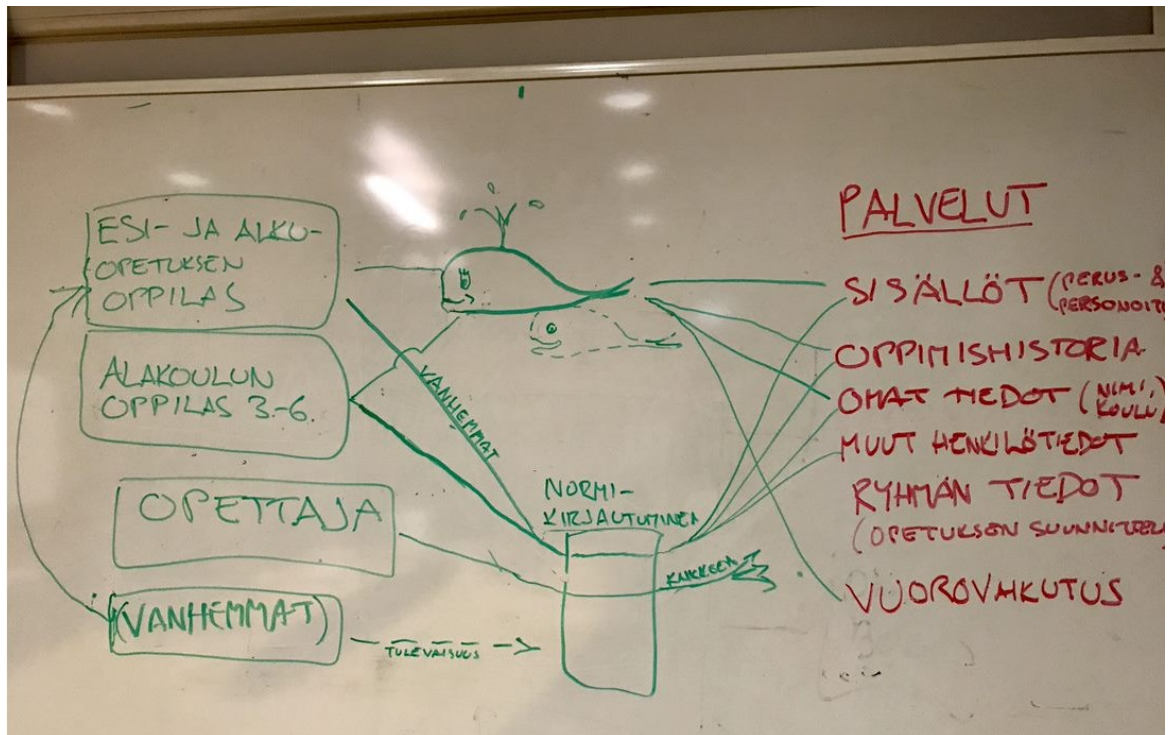 ESI- JA ALKU-
OPETUKSEN
OPPILAS
ALAKOULUN
OPPILAS 3-6.
OPETTAJA
(VANHEMMAT)
TULEVAISUUS
VANHEMMAT
NORMI-
KIRJAUTUMINEN
KAIKKEEN
PALVELUT
SISÄLLÖT (PERUS- &
PERSONOIT
OPPIMISHISTORIA
OMAT TIEDOT (NIMI,
KOULU)
MUUT HENKILÖTIEDOT
RYHMÄN TIEDOT
(OPETUKSEN SUUNNITTEL
VUOROVAIKUTUS